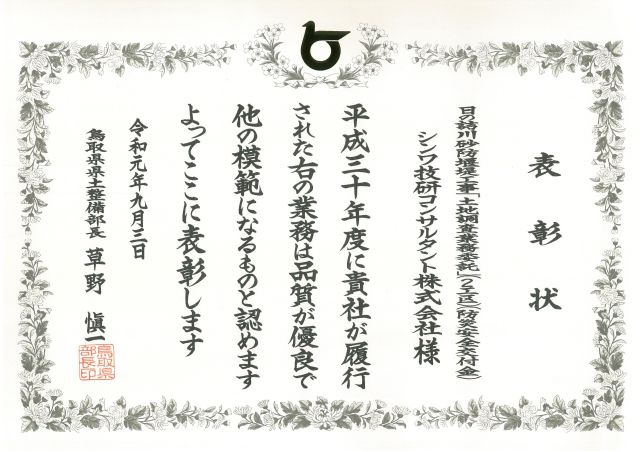 表彰状
日の詰川砂防堰堤工事「土地調査業務委託」(2工区)(防災安全交付金)
シンワ技研コンサルタント株式会社様
平成三十年度に貴社が履行
された右の業務は品質が優良で
他の模範になるものと認めます
よってここに表彰します
令和元年九月三日
鳥取県県土整備部長 草野 愼一
鳥取県
部長印